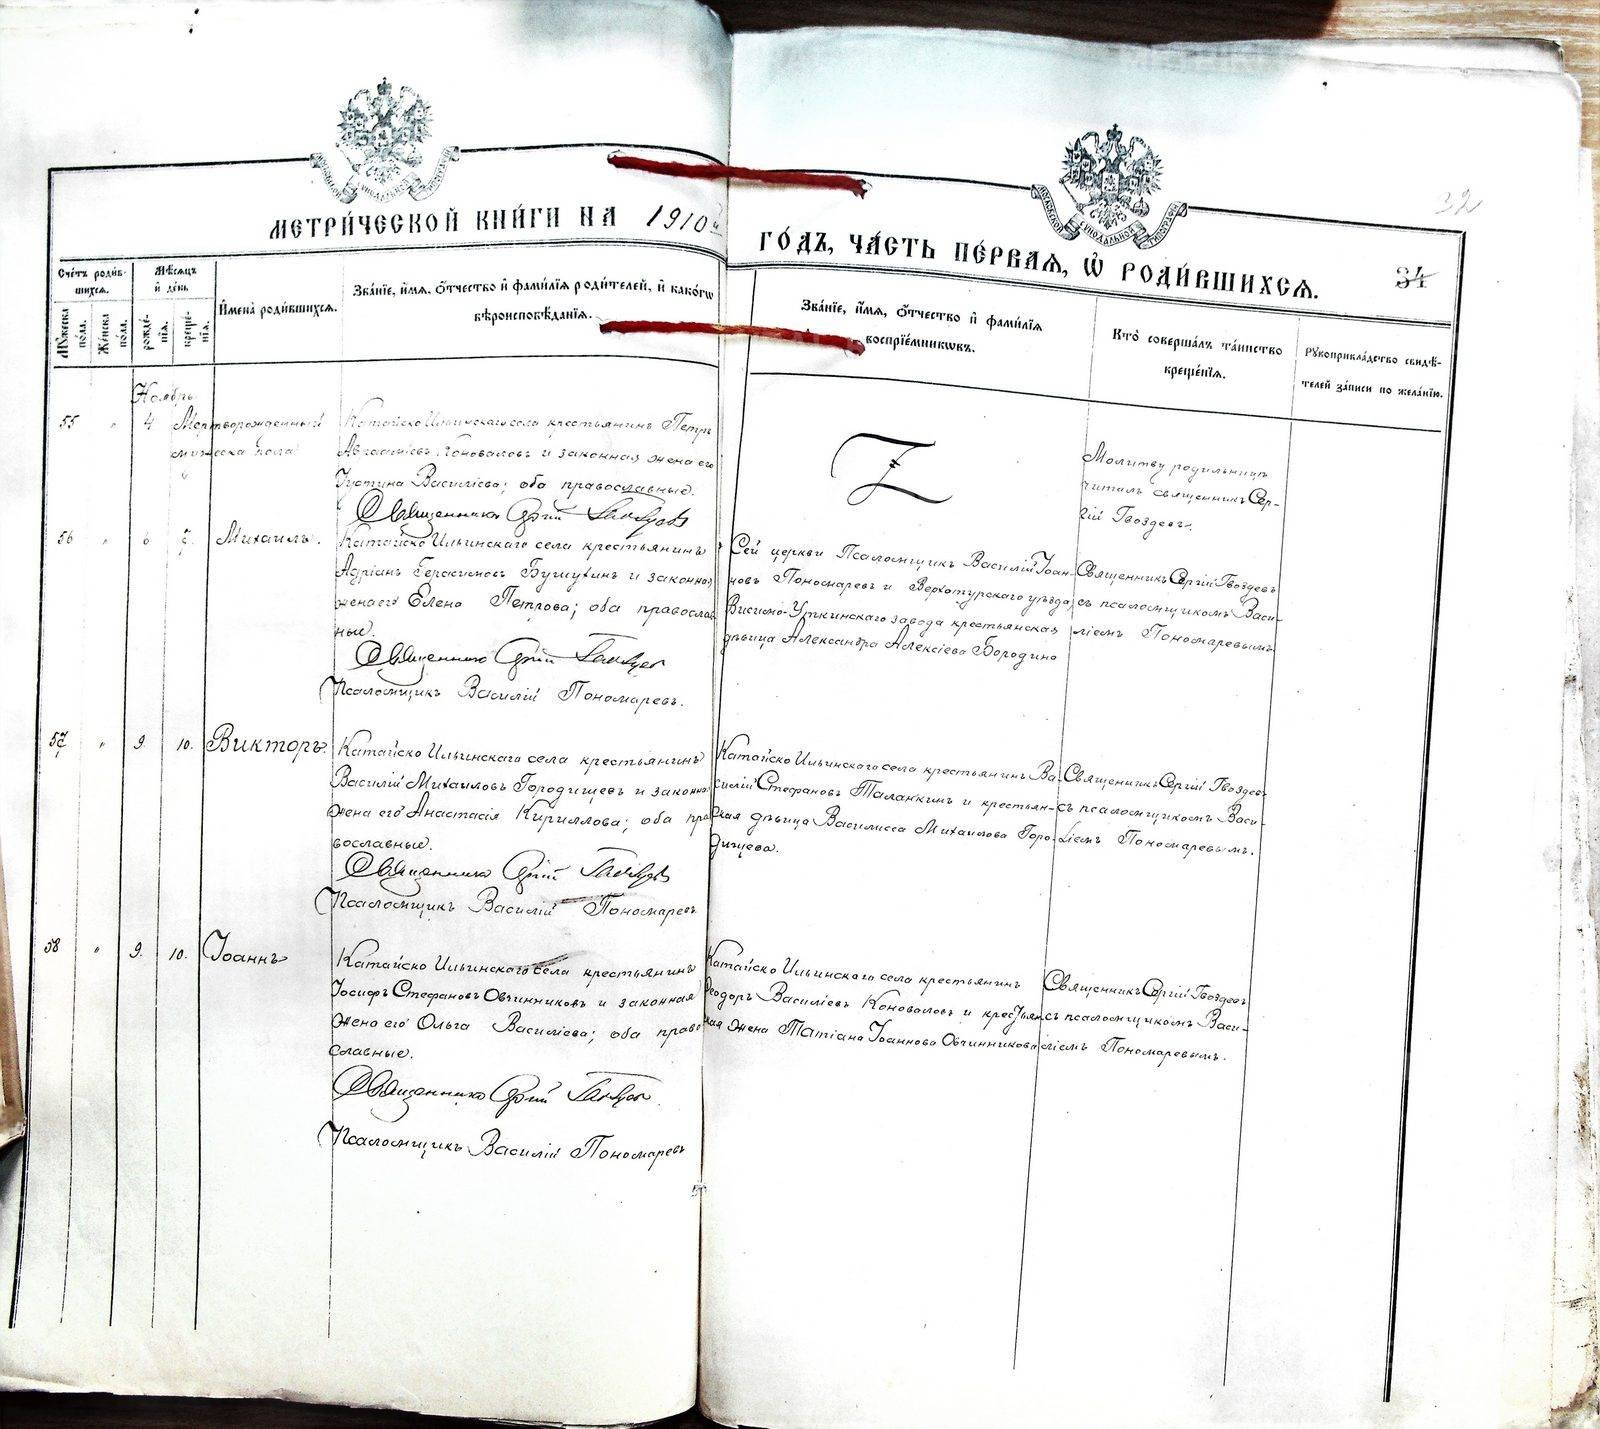 МЕТРИ́ЧЕСКОЙ КНИ́ГИ НА 1910й
ГО́ДЪ, ЧА́СТЬ ПЕ́РВАЯ, Ѿ РОДИ́ВШИХСЯ.
32
34
Сче́тъ роди́в-
шихся.
Му́жеска по́ла.
Же́нска по́ла.
Мѣ́сяцъ и де́нь
рожде́-
нїя.
креще́-
нїя.
И҆мена̀ роди́вшихся.
Зва́нїе, и҆́мя, ѻ҆́тчество и҆ фамѝлїя роди́телей, и҆ како́гѡ
вѣроисповѣ́данїя.
Зва́нїе, и҆́мя, ѻ҆́тчество и҆ фамѝлїя
воспрїе́мникѡвъ.
Кто̀ соверша́лъ та́инство
креще́нїя.
Рꙋкоприкла́дство свидѣ́-
телей за́писи по жела́нїю.
Ноябрь
55 " 4 Мертворожденный
мужеска пола
Катайско Ильинскаго села крестьянинъ Петръ
Коноваловъ и законная жена его
Іустина Василіева; оба православные.
Священникъ Сергій Гвоздевъ
Молитву родильницѣ
читалъ священникъ Сер-
гій Гвоздевъ.
56 " 6 7 Михаилъ.
Катайско Ильинскаго села крестьянинъ
Адріанъ Герасимовъ и законная
жена его Елена Петрова; оба православ
ные.
Священникъ Сергій Гвоздевъ
Псаломщикъ Василій Пономаревъ.
Сей церкви Псаломщикъ Василій Іоан-
новъ Пономаревъ и Верхотурскаго уѣзда,
Висимо-Уткинскаго завода крестьянская
дѣвица Александра Алексіева Бородина
Священникъ Сергій Гвоздевъ
съ псаломщикомъ Васи-
ліемъ Пономаревымъ
57 " 9. 10. Викторъ.
Катайско Ильинскаго села крестьянинъ
Василій Михаиловъ Городищевъ и законная
жена его Анастасія Кириллова; оба пра
вославные.
Священникъ Сергій Гвоздевъ
Псаломщикъ Василій Пономаревъ
Катайско Ильинскаго села крестьянинъ Ва-
силій Стефановъ Таланкинъ и крестьян-
ская дѣвица Василисса Михаилова Горо-
дищева.
Священникъ Сергій Гвоздевъ
съ псаломщикомъ Васи-
ліемъ Пономаревымъ.
58 " 9. 10. Іоаннъ
Катайско Ильинскаго села крестьянинъ
Іосифъ Стефановъ Овчинниковъ и законная
жена его Ольга Василіева; оба право
славные.
Священникъ Сергій Гвоздевъ
Псаломщикъ Василій Пономаревъ
Катайско Ильинскаго села крестьянинъ
Ѳеодоръ Василіевъ Коноваловъ и крестьян
ская жена Татіана Іоаннова Овчинникова
Священникъ Сергій Гвоздевъ
съ псаломщикомъ Васи-
ліемъ Пономаревымъ.